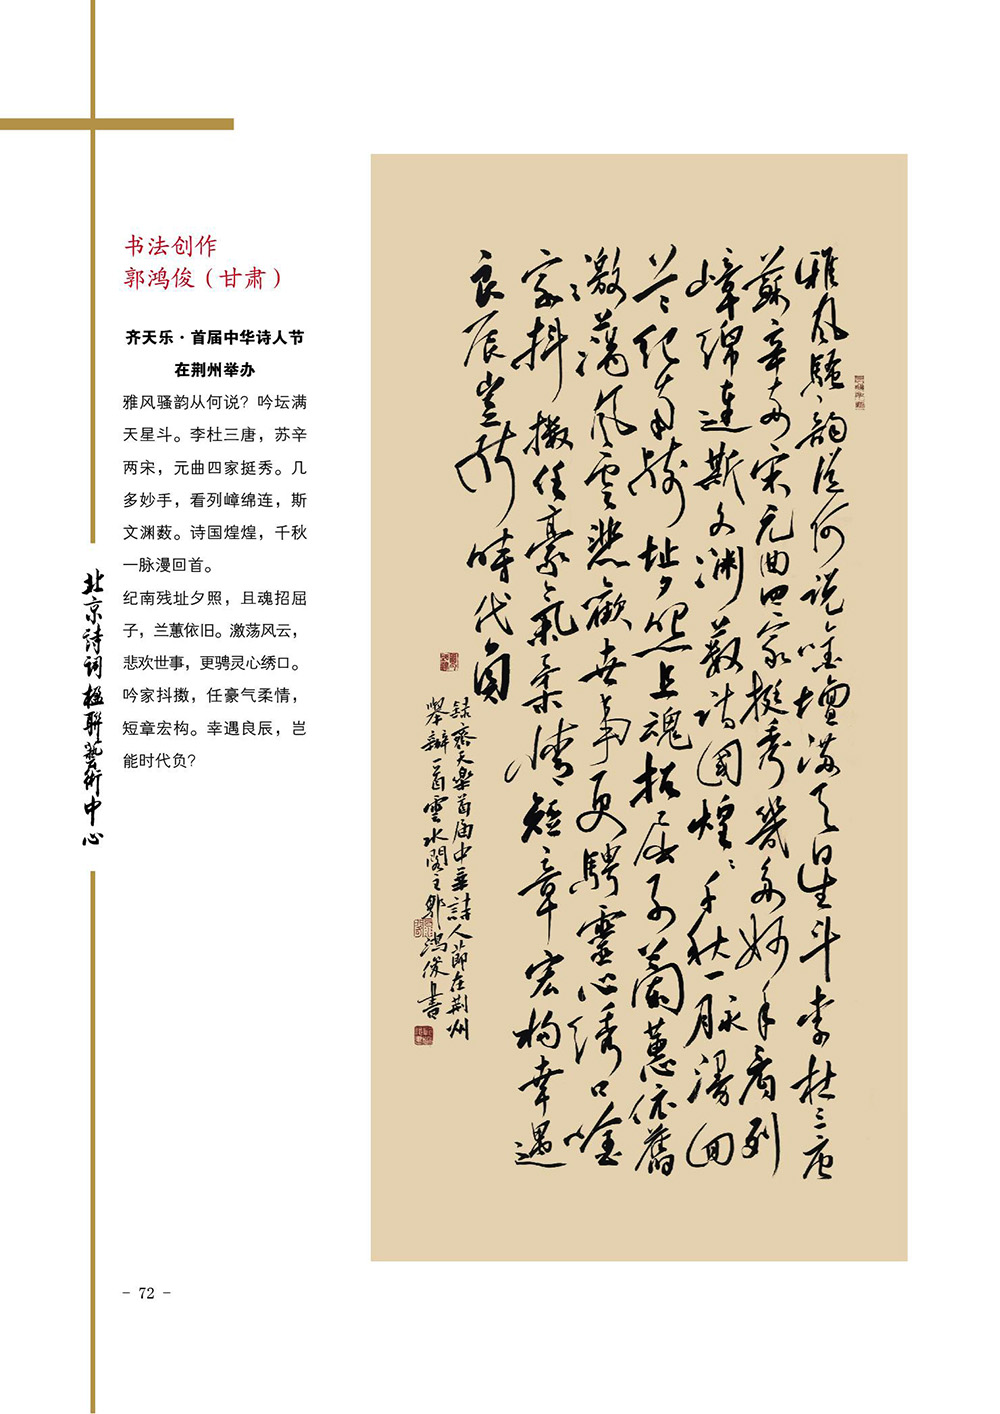 书法创作
郭鸿俊（甘肃）
齐天乐·首届中华诗人节
在荆州举办
雅风骚韵从何说？吟坛满
天星斗。李杜三唐，苏辛
两宋，元曲四家挺秀。几
多妙手，看列嶂绵连，斯
文渊薮。诗国煌煌，千秋
一脉漫回首。
纪南残址夕照，且魂招屈
子，兰蕙依旧。激荡风云，
悲欢世事，更骋灵心绣口。
吟家抖擞，任豪气柔情，
短章宏构。幸遇良辰，岂
能时代负？
北京诗词楹联艺术中心
雅风骚韵从何说吟坛满天星斗李杜三唐
蘇辛两宋元曲四家挺秀幾多妙手看列
嶂绵連斯文渊薮诗國煌煌千秋一脉漫回
首纪南残址夕照且魂招屈子蘭蕙依舊
激荡風雲悲歡世事更騁靈心绣口吟
家抖擞任豪氣柔情短章宏构幸遇
良辰岂能時代負
録齊天樂首届中華詩人節在荆州
舉辦一首雲水閣主郭鴻俊書
- 72 -